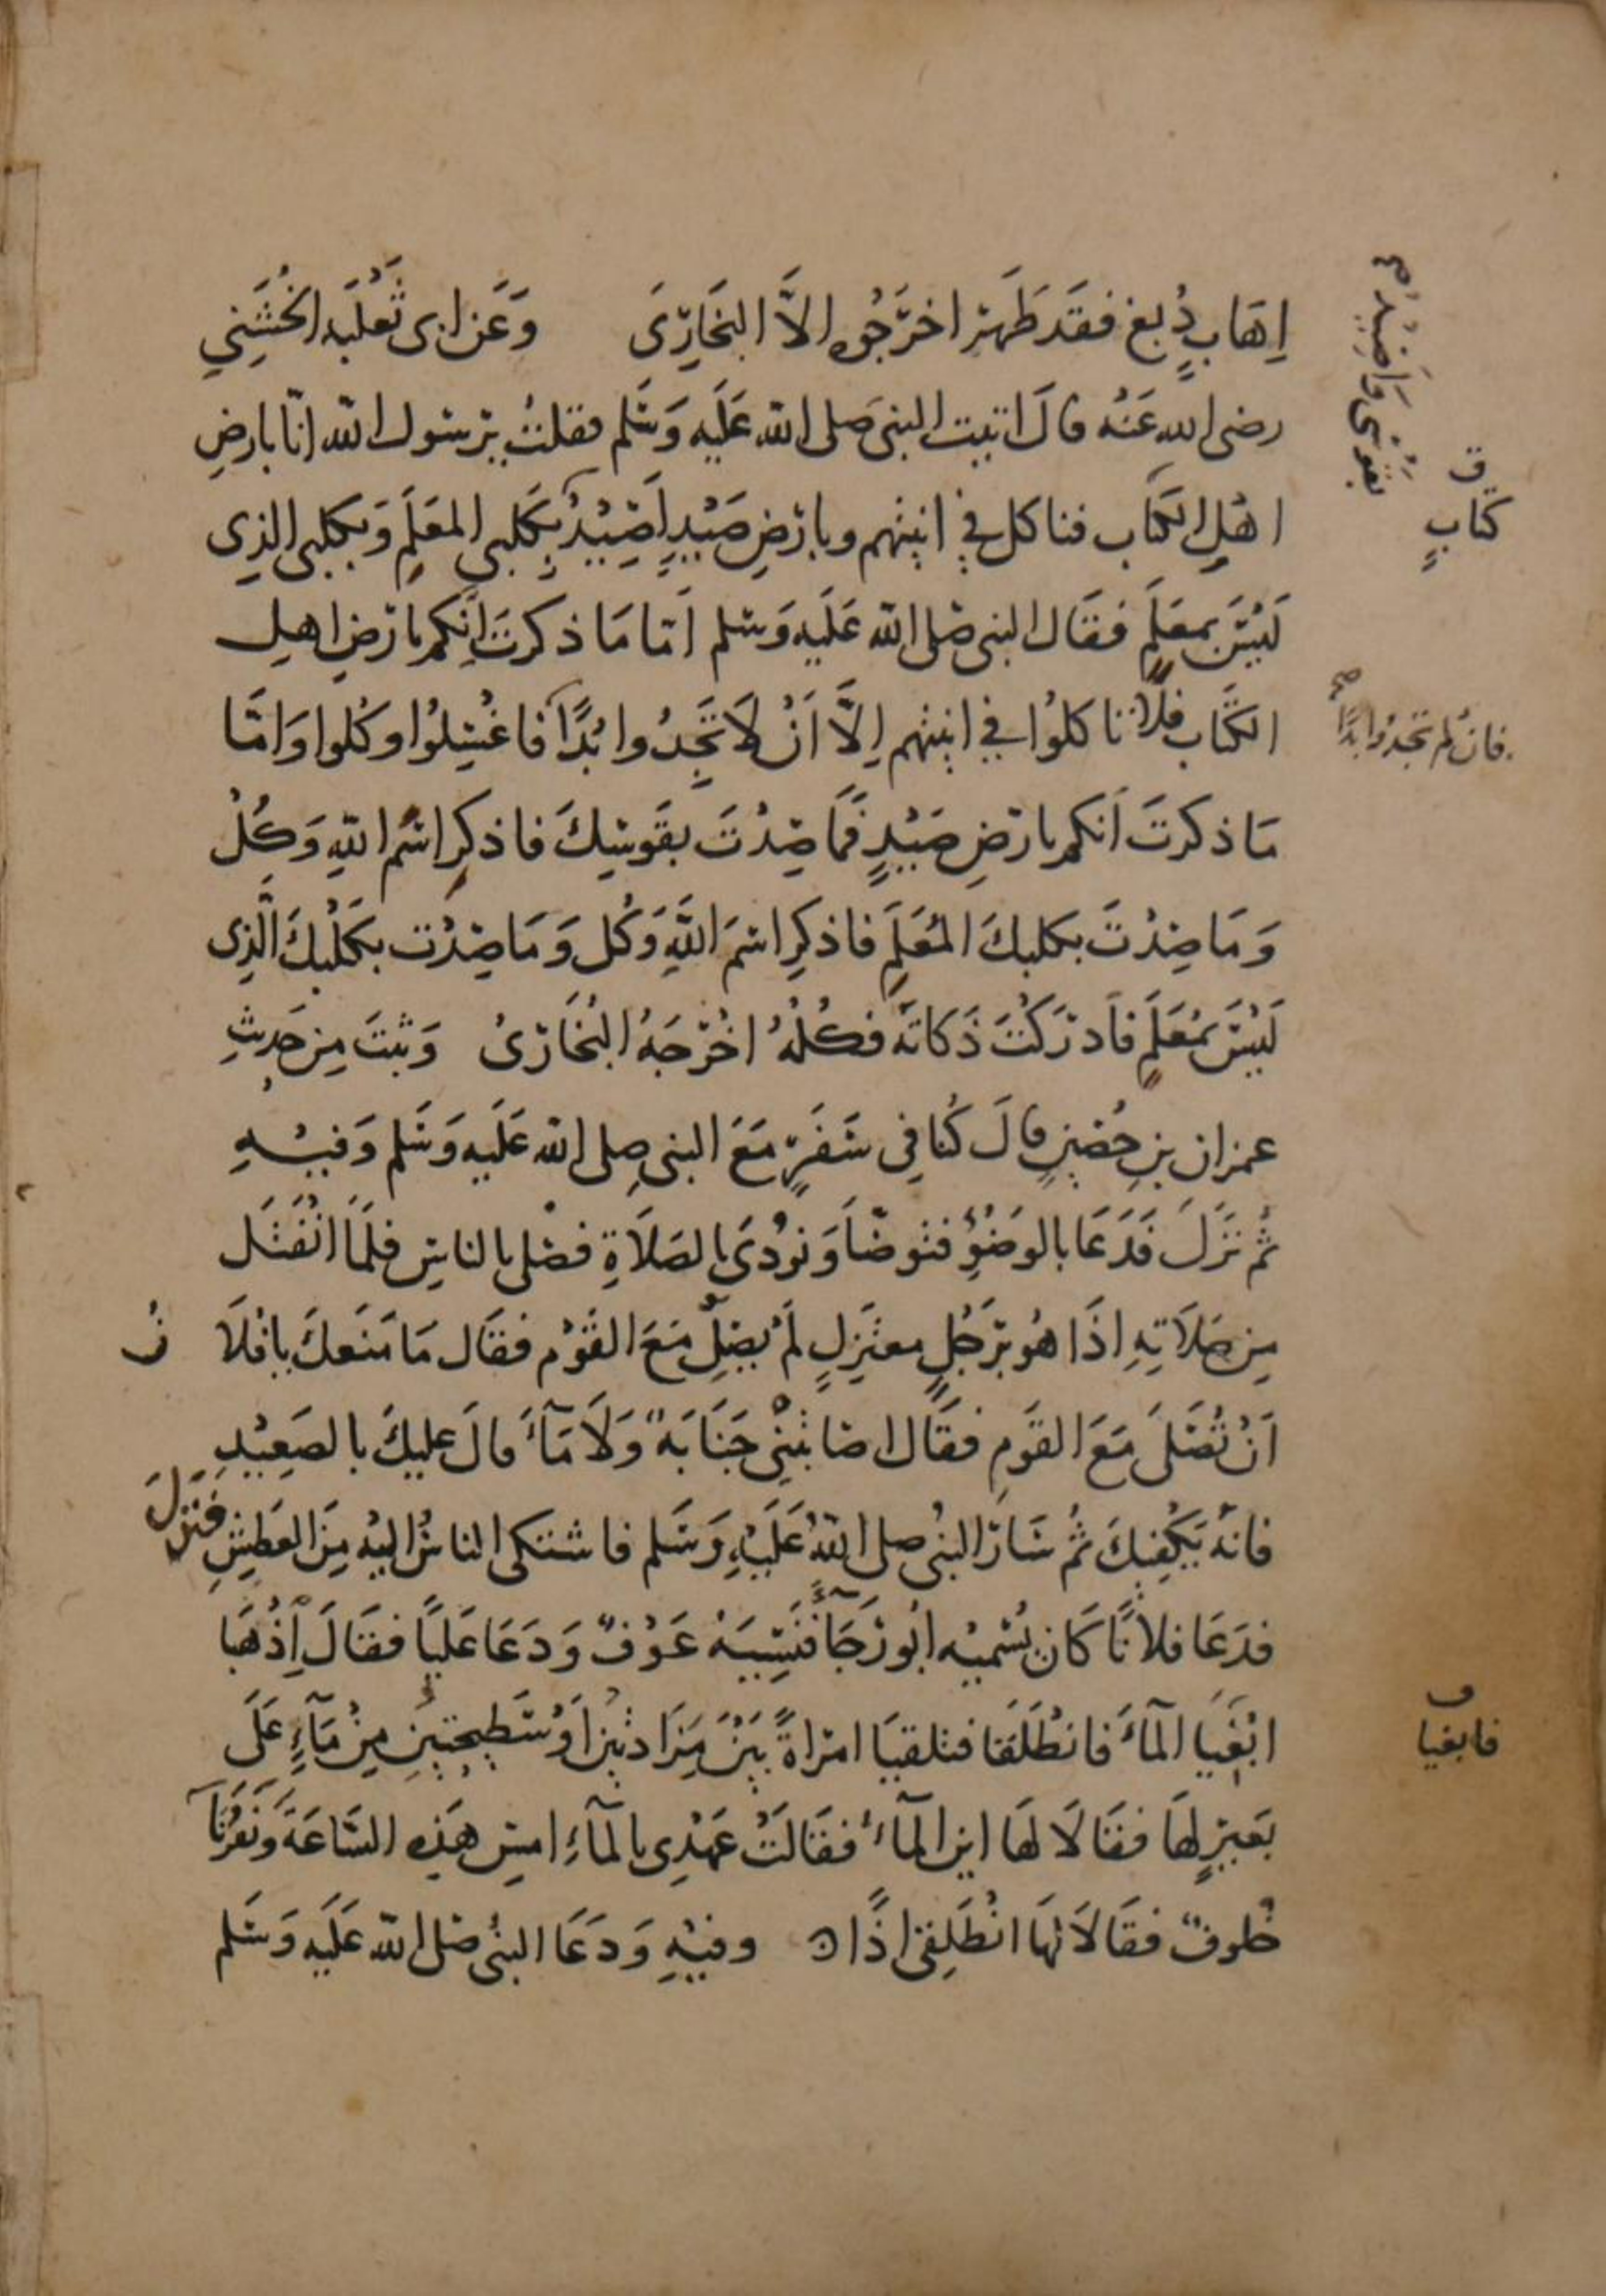 اِهَابٍ دُبغ فقَد طَهرَ اخرَجُوه الاَّ البخَارِىَ وَعَن ابى ثَعْلَبَه الخُشَنِي
رضى الله عَنهُ قالَ اتيت النبى صَلى الله عَلَيه وَسَلم فقلتُ يرسُول الله انّا بارضِ
اهْلِ الكتَاب فناكل في انيتهم وبارضِ صَيْدٍ اَصِيْدُ بكَلبى المعَلَمِ وَبكلبى الذِى
لَيْسَ بمعَلَمٍ فقَال النبى صَلى الله عَلَيه وَسَلم اَمّا مَا ذكرتَ اَنكم بارَضِ اهل
الكتَاب فلا تاكلوُا في انيتهم اِلاَّ اَنْ لاَ تَجِدُوا بُدًا فاغْسِلوُا وكُلوا وَامَّا
مَا ذكرتَ اَنكم بارضِ صَيْدٍ فمَا صِدْتَ بقَوسِكَ فاذكرِ اسْم اللهِ وَكُلْ
وَمَا صِدْتَ بكلبكَ المُعَلَمِ فاذكرِ اسْمَ اللَّهِ وَكُل وَمَا صِدْت بكَلْبكَ الَّذِى
لَيْسَ بمُعَلَمٍ فاَدرَكْتَ ذَكاتَهُ فكُلْهُ اخْرَجَهُ البُخَارىُ وَثبتَ مِن حَدِيثِ
عمران بنِ حُصَينٍ قالَ كُنا فِى سَفَرٍ مَعَ النبى صلى الله عَلَيه وَسَلم وَفيْهِ
ثُم نَزَلَ فَدَعَا بالوَضُؤِ فتوضّاَ وَنوُدىَ بالصَلاَةِ فصَلى بالناسِ فلَمَا انْفَتَل
مِن صَلاَتِهِ اذَا هُو برَجُلٍ معتَزِلٍ لَمْ يصَلِّ مَعَ القَوْم فقَال مَا مَنَعكَ يافلَا ن
اَنْ تُصَلىَ مَعَ القَومِ فقَال اصَابتْنِى جَنَابَة وَلاَ مَآءَ قالَ عليكَ بالصَعِيْدِ
فانهُ يَكْفِيكَ ثُم سَارَ النبُى صلى اللهُ عَلَيْهِ وَسَلم فاشتكى الناسُ اليْه مِنَ العَطشِ فنزلَ
فدَعَا فلانًا كَان يُسَميْه ابُو رَجَآءٍ نَسِيَهُ عَوْفٌ وَدَعَا عَليًا فقَالَ اِذْهَبَا
ابْغَيَا المآءَ فانطَلَقَا فتلقيَا امراةً بَيْنَ مَزَادتيْن اَوْ سَطِيحَتَينِ مِنْ مَآءٍ عَلَى
بَعيرٍ لهَا فقَالاَ لهَا اين المآءُ فقَالَتْ عَهْدِى بالمآءِ امسِ هَذِه السَّاعَةَ وَنَفَرُنَا
خُلوفٌ فقَالاَ لهَا انْطَلِقِى اذًا ن وفيْهِ وَدَعَا النبُى صَلى الله عَلَيه وَسَلم
بقَوسِى وَاَصِيْدُ م
ق
كتَابٍ
فان لم تجدُوا بُدًا
صح
ف
فابغيا